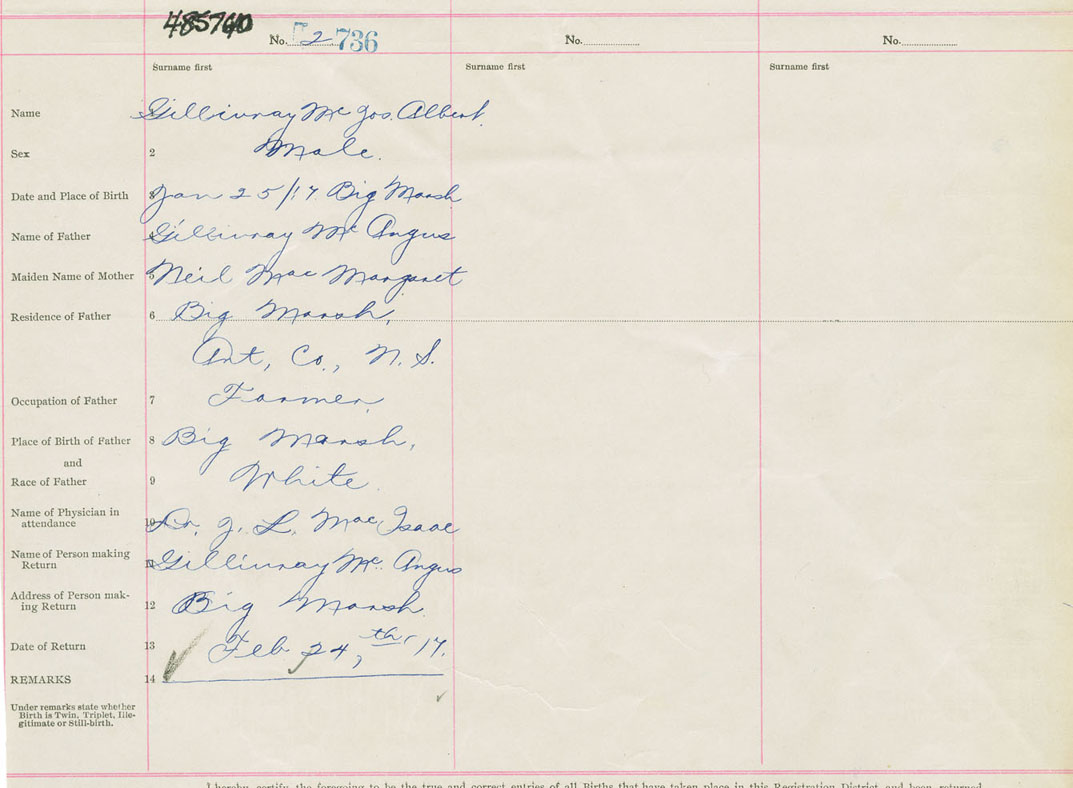 No. 2 736
No.
No.
Surname first
Surname first
Surname first
Name Gillivray Mc Jos. Albert
Sex 2 Male.
Date and Place of Birth 3 Jan 25/17. Big Marsh
Name of Father 4 Gillivray Mc Angus
Maiden Name of Mother 5 Neil Mac Margaret
Residence of Father 6 Big Marsh,
Ant, Co., N. S.
Occupation of Father 7 Farmer,
Place of Birth of Father 8 Big Marsh,
and
Race of Father 9 White
Name of Physician in
attendance 10 Dr. J. L. Mac Isaac
Name of Person making
Return 11 Gillivray Mc. Angus
Address of Person mak-
ing Return 12 Big Marsh.
Date of Return 13 Feb 24,th 17.
REMARKS 14
Under remarks state whether
Birth is Twin, Triplet, Ille-
gitimate or Still-birth.
I hereby certify the foregoing to be the true and correct entries of all Births that have taken place in this Registration District and been returned